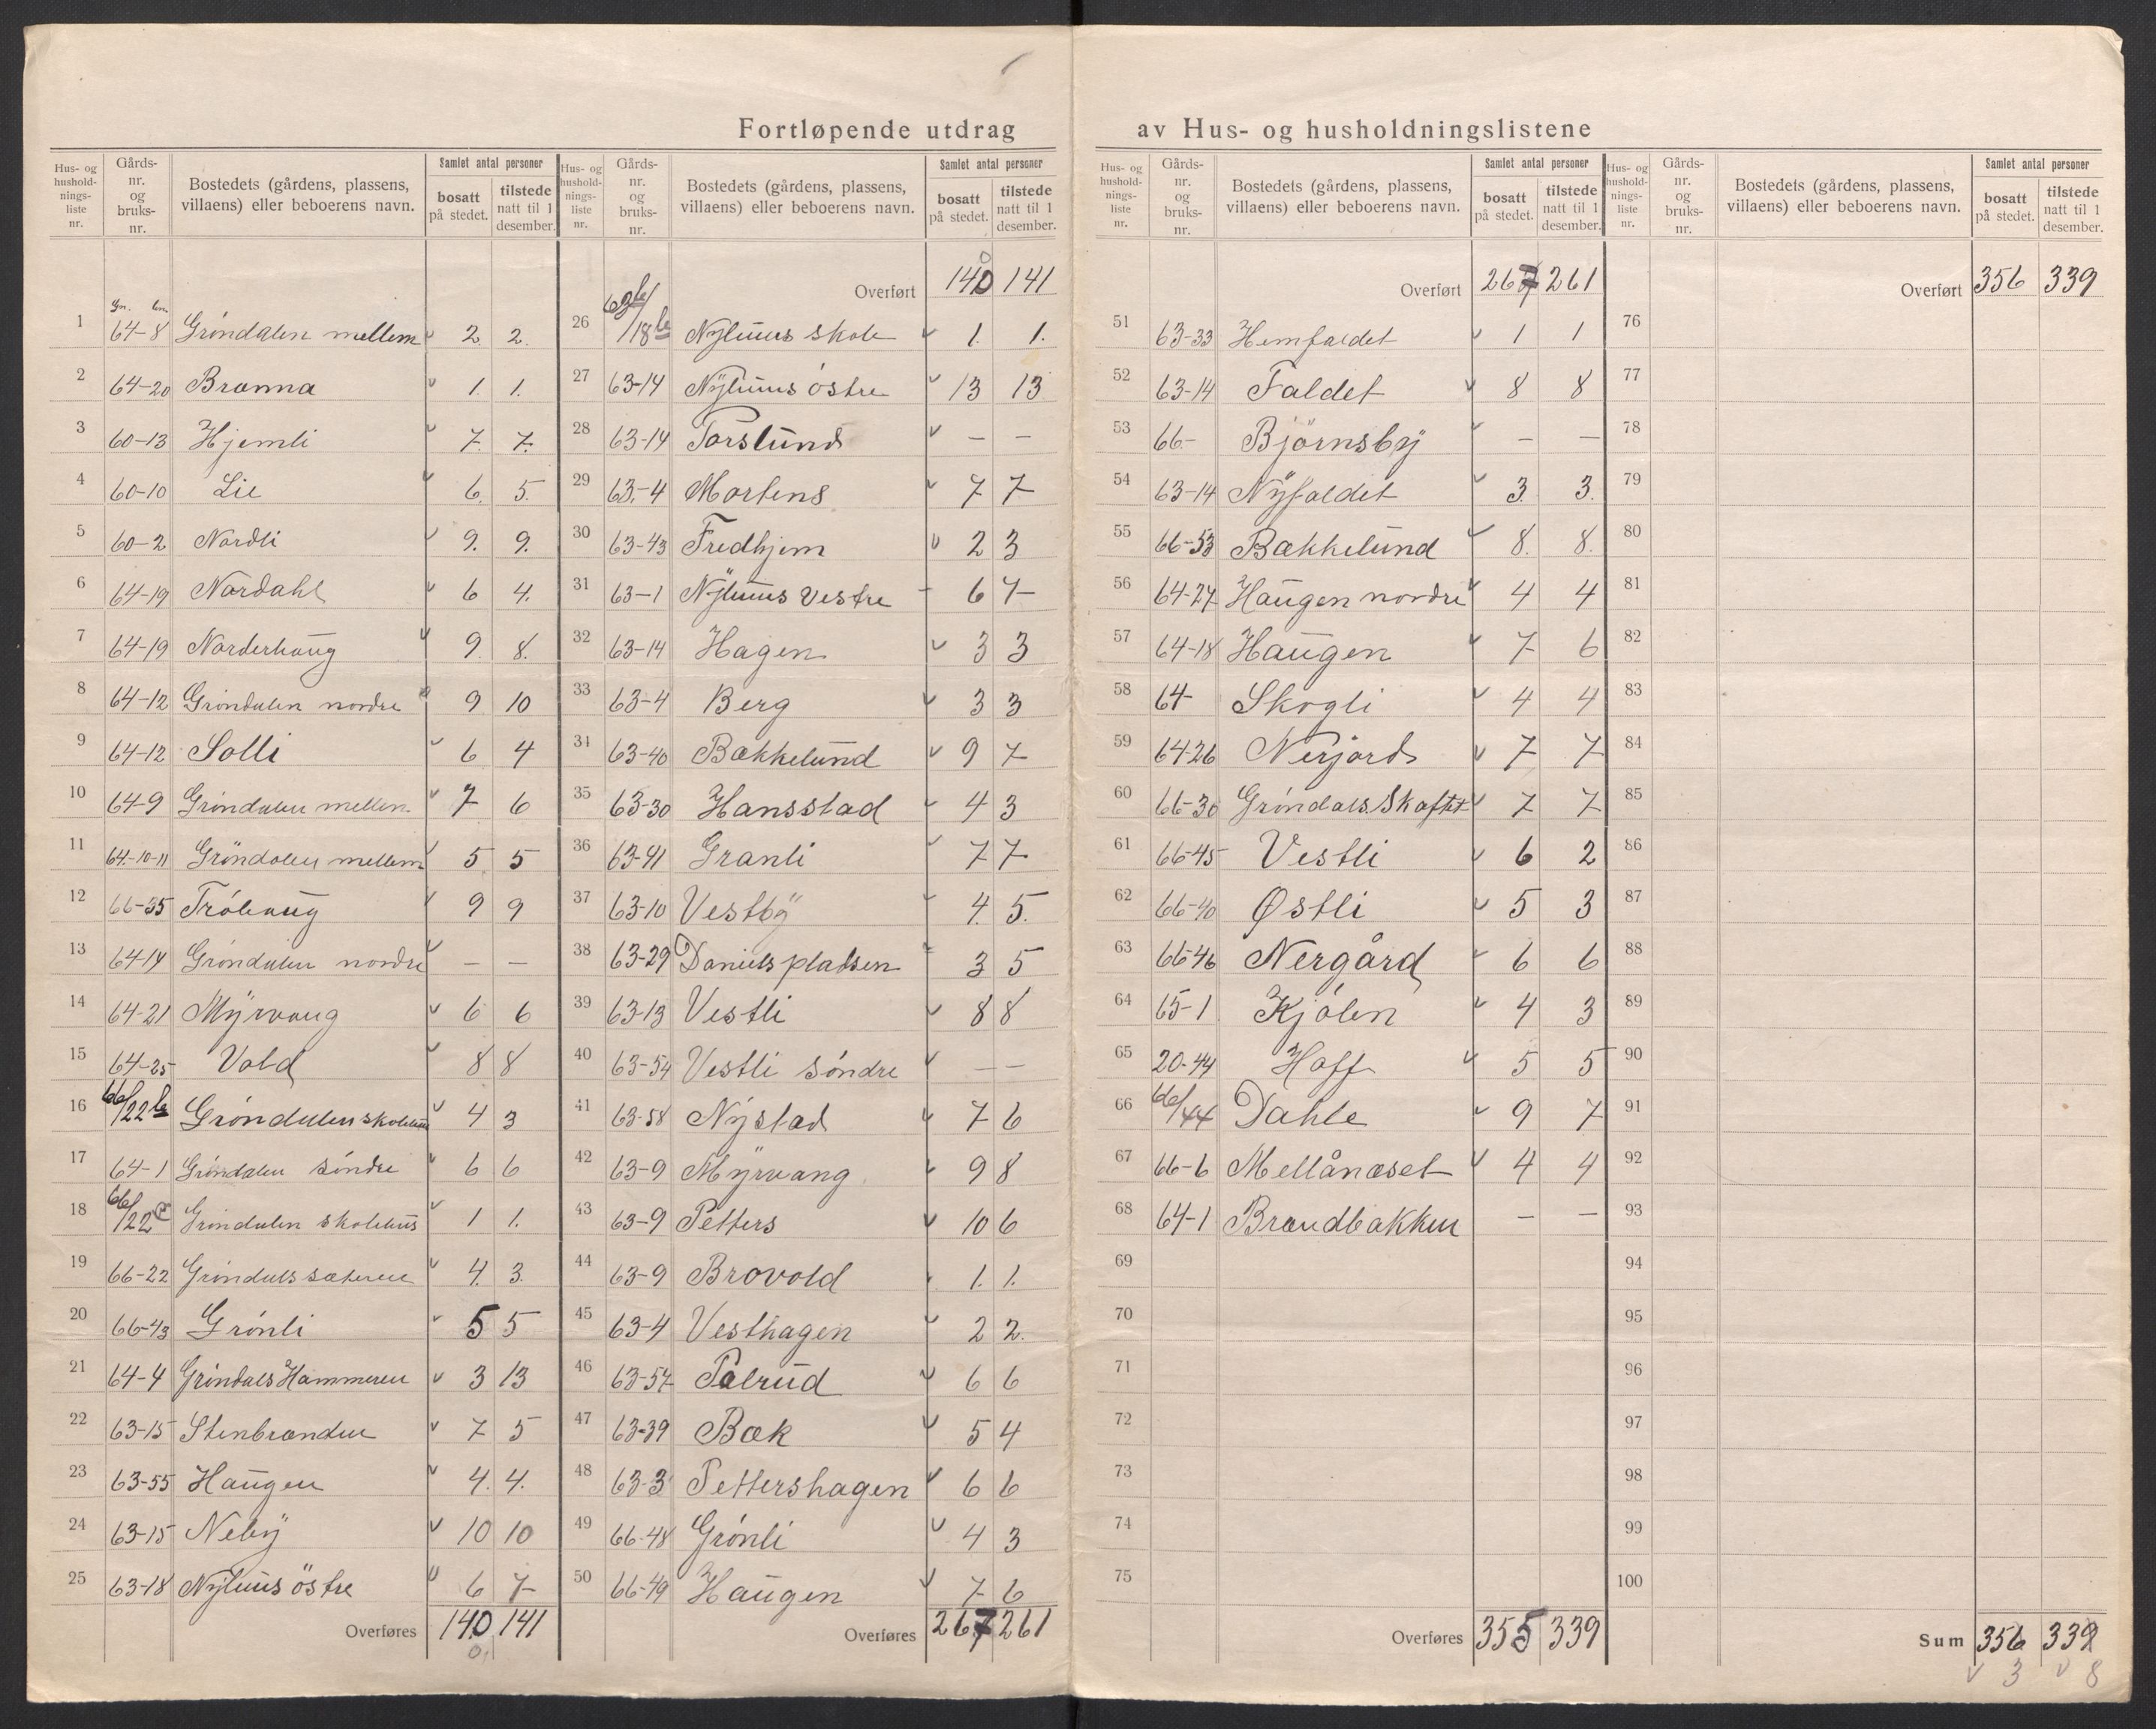 Fortløpende utdrag av Hus- og husholdningslistene
Hus- og hushold-nings-liste nr. | Gårds-nr. og bruks-nr. | Bostedets (gårdens, plassens, villaens) eller beboerens navn. | Samlet antal personer | bosatt på stedet. | tilstede natt til 1 desember.
Gn. bn.
1 64-8 Gröndalen mellem v 2. 2.
2 64-20 Brænna v 1. 1.
3 60-13 Hjemli v 7. 7.
4 60-10 Lie v 6. 5.
5 60-2 Nordli v 9. 9.
6 64-19 Nordahl v 6 4.
7 64-19 Norderhaug v 9. 8.
8 64-12 Gröndalen nordre 9 10
9 64-12 Solli v 6 4
10 64-9 Gröndalen mellem v 7 6
11 64-10-11 Gröndalen mellem v 5 5
12 66-35 Tröhaug v 9 9
13 64-14 Gröndalen nordre v — —
14 64-21 Myrvang v 6 6
15 64-25 Vold v 8 8
16 66/22 b Gröndalen v 4 3
17 64-1 Gröndalen söndre v 6 6
18 66/22 Gröndalen skolehus v 1 1.
19 66-22 Gröndalssæteren v 4. 3.
20 66-43 Grönli v 5 5
21 64-4 Gröndals Hammeren v 3 13
22 63-15 Stenbrænden v 7 5
23 63-55 Haugen v 4. 4.
24 63-15 Neby v 10 10
25 63-18 Nyluus östre v 6 7
Overføres 140 141
Overført 140 141
26 18 b Nyluus skole v 1. 1.
27 63-14 Nyluus östre v 13 13
28 63-14 Torslund v — —
29 63-4 Mortens v 7 7
30 63-43 Fredhjem v 2 3
31 63-1 Nyluus Vestre 6 7
32 63-14 Hagen v 3 3
33 63-4 Berg v 3 3
34 63-40 Bækkelund v 9 7
35 63-30 Hansstad v 4 3
36 63-41 Granli v 7 7
37 63-10 Vestby v 4. 5.
38 63-29 Danielspladsen 3 5
39 63-13 Vestli v 8 8
40 63-54 Vestli söndre v — —
41 63-58 Nystad v 7 6
42 63-9 Myrvang v 9 8
43 63-9 Petters v 10 6
44 63-9 Brovold v 1. 1.
45 63-4 Vesthagen v 2 2.
46 63-57 Palrud v 6 6
47 63-39 Bæk v 5 4
48 63-3 Pettershagen v 6 6
49 66-48 Grönli v 4 3
50 66-49 Haugen v 7 6
Overføres 267 261
Overført 267 261
51 63-33 Hemfaldet v 1 1
52 63-14 Faldet v 8 8
53 66- Björnsby v — —
54 63-14 Nyfaldet v 3. 3.
55 66-53 Bækkelund v 8. 8.
56 64-27 Haugen nordre v 4 4
57 64-18 Haugen v 7 6
58 64- Skogli v 4 4
59 64-26 Nerjord v 7 7
60 66-30 Gröndals Skaftet v 7 7
61 66-45 Vestli v 6 2
62 66-40 Østli v 5 3
63 66-46 Nergård v 6 6
64 65-1 Kjölen v 4 3
65 20-44 Hoff v 5 5
66 66/44 Dahle v 9 7
67 66-6 Mellånæset v 4 4
68 64-1 Brændbakken — —
69
70
71
72
73
74
75
Overføres 355 339
Overført 356 339
76
77
78
79
80
81
82
83
84
85
86
87
88
89
90
91
92
93
94
95
96
97
98
99
100
Sum 356 339
v 3 v 8